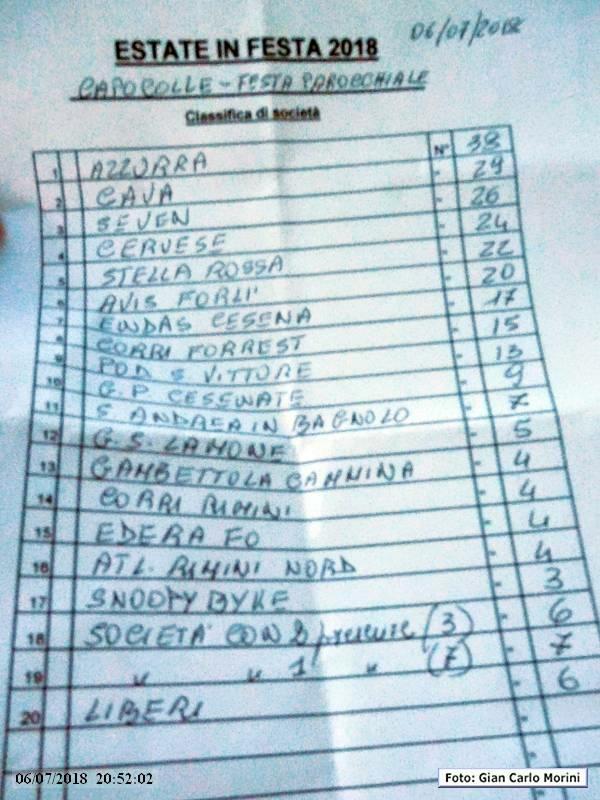 06/07/2018
ESTATE IN FESTA 2018
CAPOCOLLE - FESTA PAROCCHIALE
Classifica di società
1 AZZURRA N° 38
2 CAVA - 29
3 SEVEN - 26
4 CERVESE - 24
5 STELLA ROSSA - 22
6 AVIS FORLI' - 20
7 ENDAS CESENA - 17
8 CORRI FORREST - 15
9 POD S. VITTORE - 13
10 G.P. CESENATE - 9
11 S. ANDREA IN BAGNOLO - 7
12 G.S. LAMONE - 5
13 GAMBETTOLA CAMMINA - 4
14 CORRI RIMINI - 4
15 EDERA FO - 4
16 ATL. RIMINI NORD - 4
17 SNOOPY BYKE - 3
18 SOCIETA' CON 2 presenze (3) - 6
19 " " 1 " (7) - 7
20 LIBERI - 6
06/07/2018 20:52:02
Foto: Gian Carlo Morini